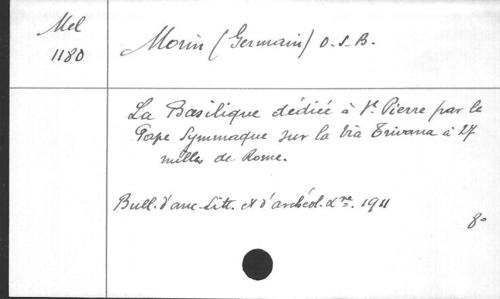 Mel
1180
Morin (Germain) O.S.B.
La Basilique dédiée à St. Pierre par le
Pape Symmaque sur la Via Trivana à 27
milles de Rome.
Bull. d'anc. litt. et d'archéol. xre. 1911
8°